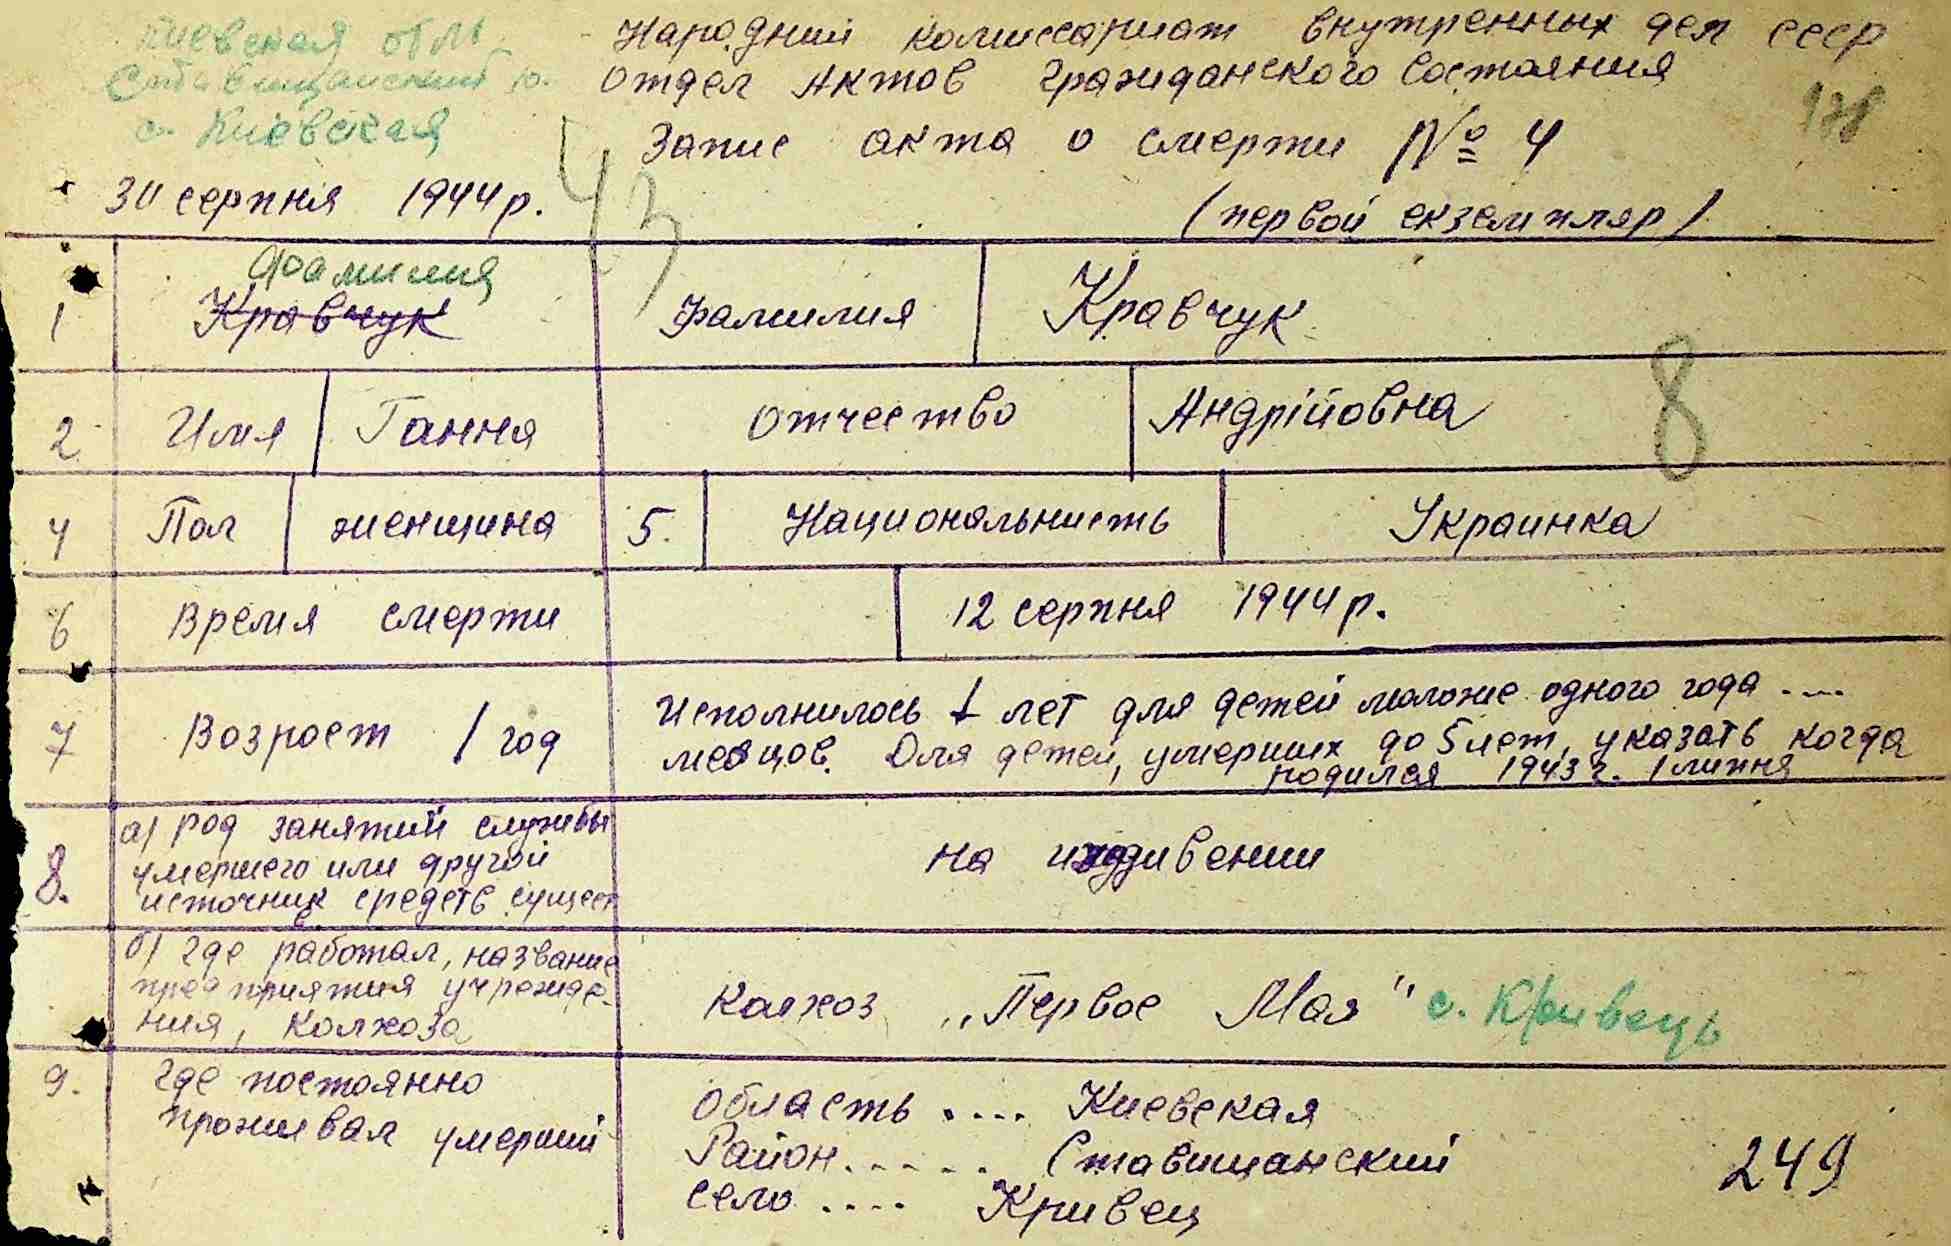 Киевская обл
Ставищанский р.
с. Киевская
Народний комиссариат внутренных дел СССР
Отдел Актов Гражданского Состояния
178
Запис акта о смерти № 4
43
30 серпня 1944 р.
(первой екземпляр)
1 Фамилия
Кравчук Фамилия Кравчук
8
2 Имя Гання Отчество Андрійовна
4 Пол женщина 5. Национальнисть Украинка
6 Время смерти 12 серпня 1944 р.
7 Возрост 1 год
Исполнилось 1 лет для детей моложе одного года ....
месяцов. Для детей, умерших до 5 лет, указать когда
родился 1943 г. 1 липня
8. а) род занятий службы
умершего или другой
источник средств сущест
на иждивении
б) где работал, название
предприятия учрежде-
ния, колхоза
Колхоз „Первое Мая" с. Кривець
9. где постоянно
проживал умерший
Область .... Киевская
Район..... Ставищанский
село .... Кривец
249